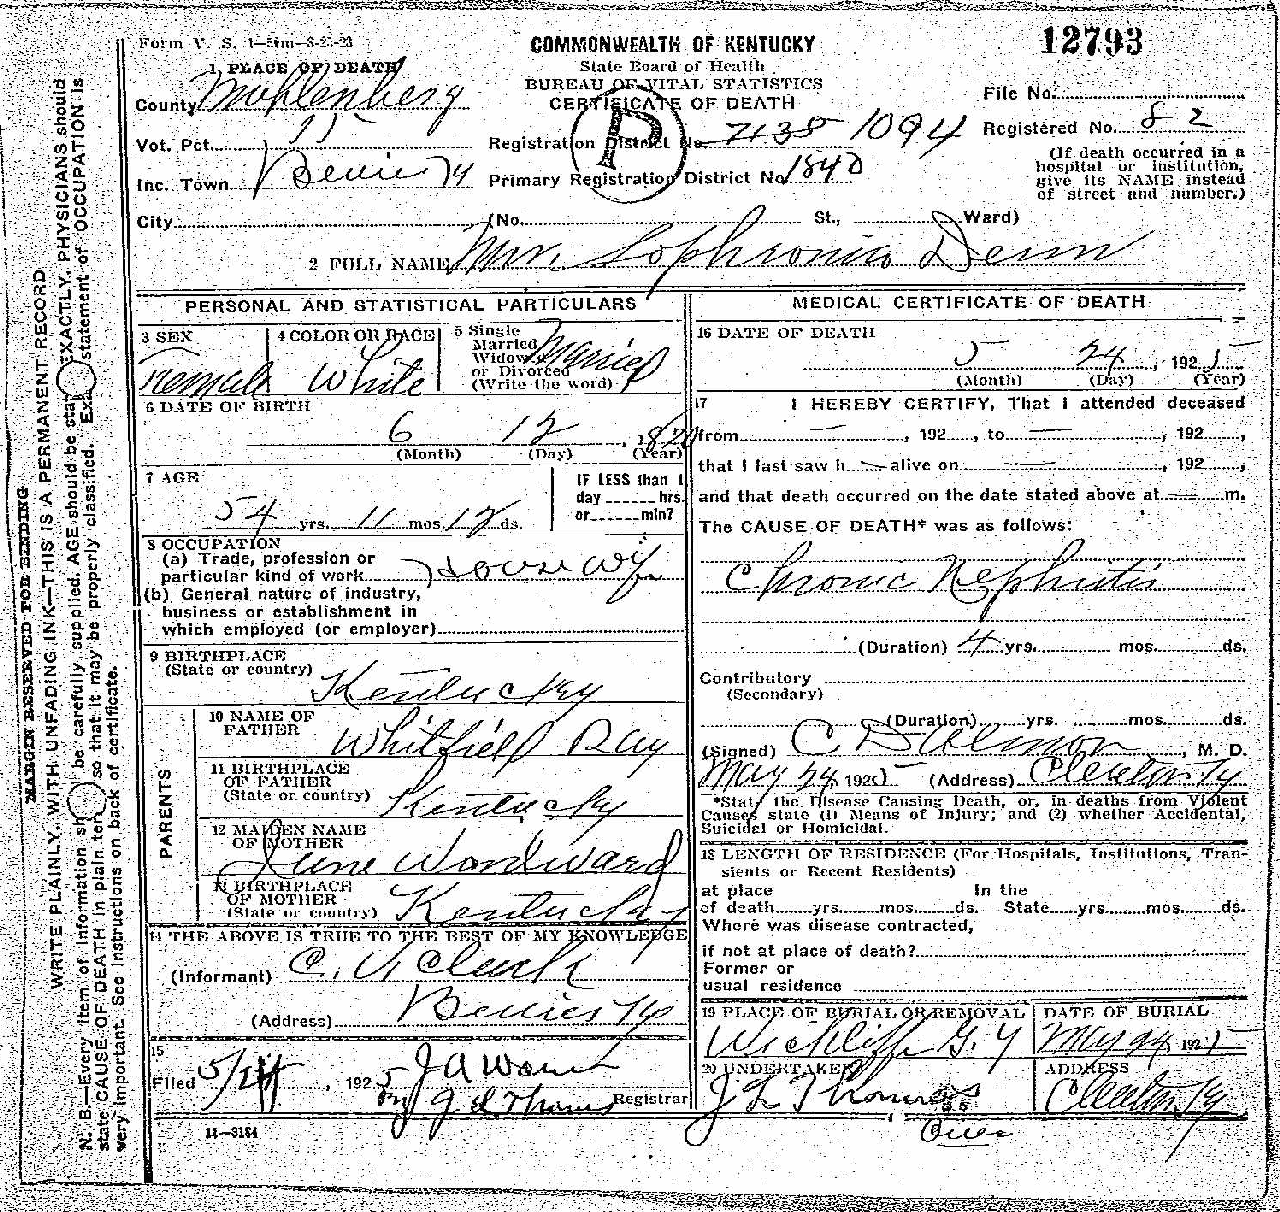 Form V. S. 1—51m—3-23-23
COMMONWEALTH OF KENTUCKY
State Board of Health
BUREAU OF VITAL STATISTICS
CERTIFICATE OF DEATH
12793
1 PLACE OF DEATH
County Muhlenberg
Vot. Pct. 15
Inc. Town Bevier Ky
City (No. St., Ward)
P
Registration District No. 7135 1094
Primary Registration District No 1840
File No.
Registered No. 82
(If death occurred in a
hospital or institution,
give its NAME instead
of street and number.)
2 FULL NAME Mrs. Sophronia
PERSONAL AND STATISTICAL PARTICULARS
3 SEX
Female
4 COLOR OR RACE
White
5 Single
Married
Widowed
or Divorced
(Write the word)
Married
6 DATE OF BIRTH
6 12
(Month) (Day) (Year)
7 AGE
54 yrs. 11 mos. 12 ds.
IF LESS than 1
day hrs.
or min?
8 OCCUPATION
(a) Trade, profession or
particular kind of work House wif
(b) General nature of industry,
business or establishment in
which employed (or employer)
9 BIRTHPLACE
(State or country)
Kentucky
PARENTS
10 NAME OF
FATHER
Whitfield Ray
11 BIRTHPLACE
OF FATHER
(State or country)
Kentucky
12 MAIDEN NAME
OF MOTHER
June Woodward
13 BIRTHPLACE
OF MOTHER
(State or country)
Kentucky
14 THE ABOVE IS TRUE TO THE BEST OF MY KNOWLEDGE
(Informant) C. V. Clark
(Address) Bevier Ky
15
Filed 5/24, 1925 J A
By J L Thomas Registrar
11—3184
MEDICAL CERTIFICATE OF DEATH
16 DATE OF DEATH
5 24, 1925
(Month) (Day) (Year)
17 I HEREBY CERTIFY, That I attended deceased
from —, 192, to —, 192,
that I last saw h — alive on —, 192,
and that death occurred on the date stated above at — m.
The CAUSE OF DEATH* was as follows:
Chronic Nephritis
(Duration) 4 yrs. mos. ds.
Contributory
(Secondary)
(Duration) yrs. mos. ds.
(Signed) C, M. D.
May 24 1925 (Address) Cleaton Ky
*State the Disease Causing Death, or, in deaths from Violent
Causes state (1) Means of Injury; and (2) whether Accidental,
Suicidal or Homicidal.
18 LENGTH OF RESIDENCE (For Hospitals, Institutions, Tran-
sients or Recent Residents)
at place In the
of death yrs. mos. ds. State yrs. mos. ds.
Where was disease contracted,
if not at place of death?
Former or
usual residence
19 PLACE OF BURIAL OR REMOVAL
Wickliffe G. Y
DATE OF BURIAL
May 24 1925
20 UNDERTAKER
J L Thomas
ADDRESS
Cleaton Ky
Over
MARGIN RESERVED FOR BINDING
WRITE PLAINLY, WITH UNFADING INK—THIS IS A PERMANENT RECORD
N. B.—Every item of information should be carefully supplied. AGE should be stated EXACTLY. PHYSICIANS should
state CAUSE OF DEATH in plain terms, so that it may be properly classified. Exact statement of OCCUPATION is
very important. See instructions on back of certificate.